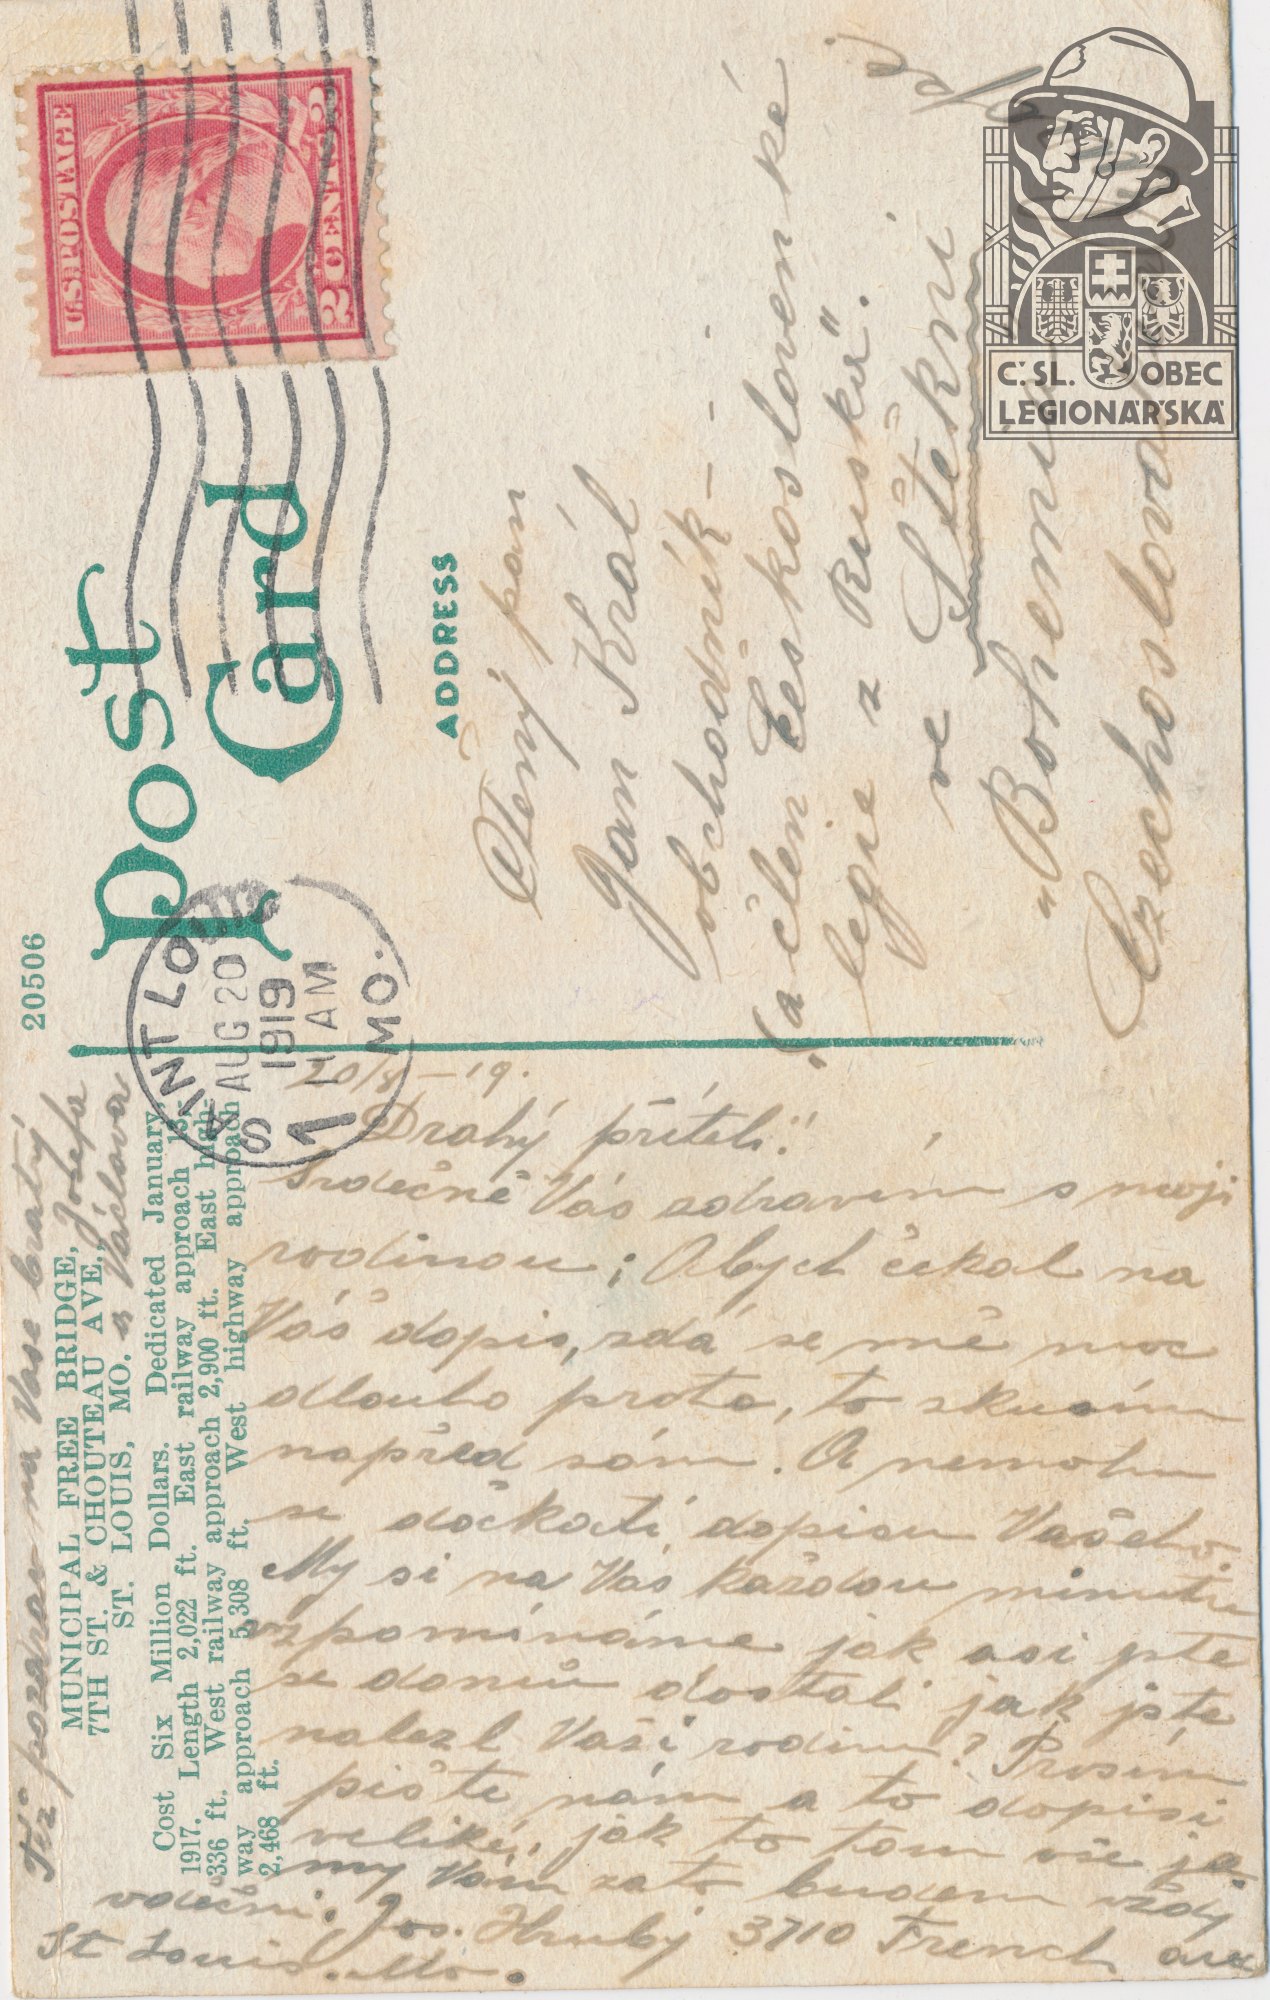 20506
Post
Card
ADDRESS
U.S. POSTAGE
2 CENTS 2
SAINT LOUIS
AUG 20
1919
1 AM
MO.
MUNICIPAL FREE BRIDGE,
7TH ST. & CHOUTEAU AVE.,
ST. LOUIS, MO.
Cost Six Million Dollars. Dedicated January,
1917. Length 2,022 ft. East railway approach 13,-
336 ft. West railway approach 2,900 ft. East high-
way approach 5,308 ft. West highway approach
2,468 ft.
Též pozdrav na Vase bratrý
Josefa
a Václava
20/8 – 19.
Drahý příteli!
Srdečně Vás zdravím s mojí
rodinou; Abych čekal na
Váš dopis, zdá se mě moc
dlouho proto, to zkusím
napřed sám. A nemohu
se dočkati dopisu Vašeho.
My si na Vás každou minutu
vzpomínáme jak asi jste
se domů dostali jak jste
nalezl Vaši rodinu? Prosím
pište nám a to dopisi
veliké, jak to tam vše je.
my Vám zato budem vždy
vděčni. Jos. Hrubý 3710 French ave
St Louis. Mo.
Ctený pán
Jan Král
obchodník – – –
"(a člen Československé
legie z Ruska".
ve Štěkni
"Bohemia"
Czechoslovak
C.SL. OBEC
LEGIONÁŘSKÁ